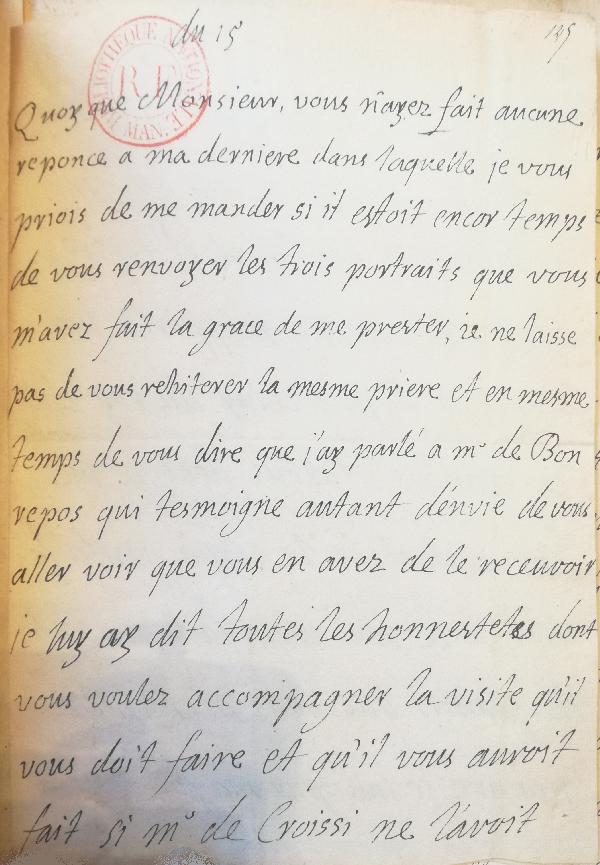 du 15
125
BIBLIOTHEQUE NATIONALE MAN.
R.F.
Quoy que Monsieur, vous n'ayez fait aucune
reponce a ma derniere dans laquelle je vous
priois de me mander si il estoit encor temps
de vous renvoyer les trois portraits que vous
m'avez fait la grace de me prester, ie ne laisse
pas de vous rehiterer la mesme priere et en mesme
temps de vous dire que j'ay parlé a mr de Bon
repos qui tesmoigne autant d'envie de vous
aller voir que vous en avez de le recevoir
je luy ay dit toutes les honnestetes dont
vous voulez accompagner la visite qu'il
vous doit faire et qu'il vous auroit
fait si mr de Croissi ne l'avoit